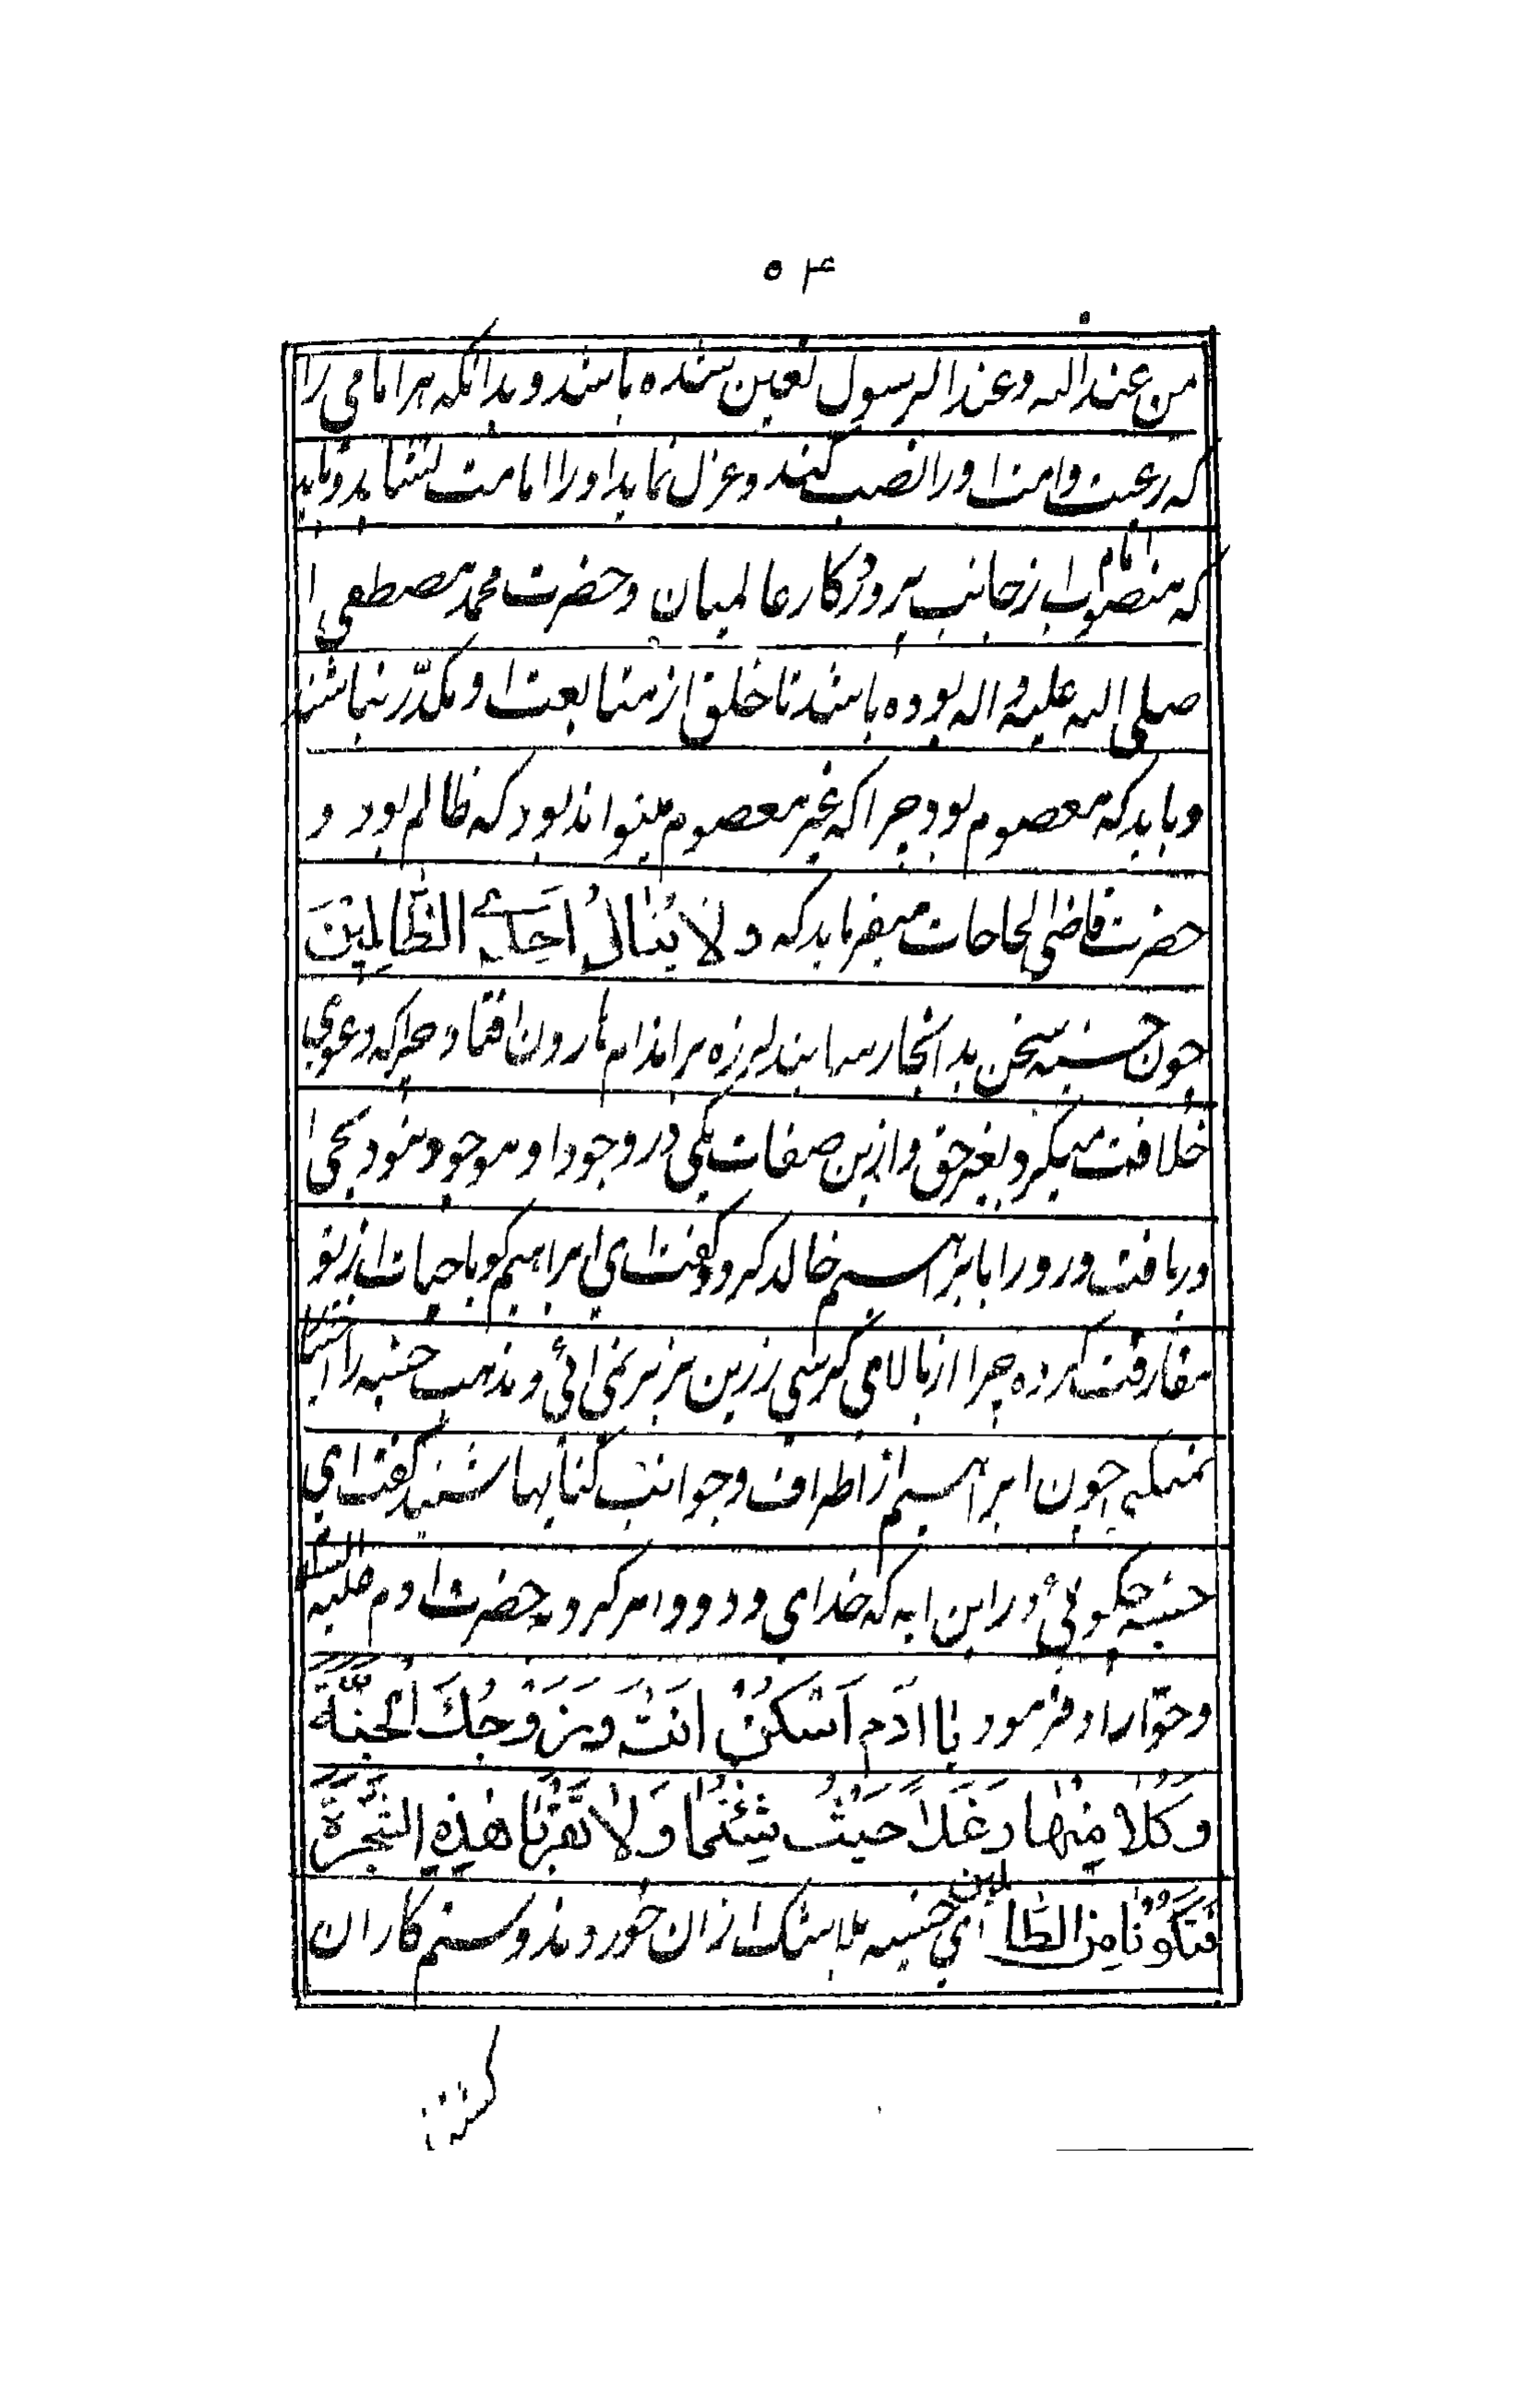 ۵۴
من عند الله و عند الرسول تعین شده باشد و بدانکه هر امامی را
که رعیت و امت او را نصب کند و عزل نماید او را امامت نشاید و باید
که امام منصوب از جانب پروردکار عالمیان و حضرت محمد مصطفی
صلی الله علیه و اله بوده باشد تا خلق از متابعت او مکدّر نباشند
و باید که معصوم بود چرا که غیر معصوم میتواند بود که ظالم بود و
حضرت قاضی الحاجات میفرماید که و لَا یَنٰالُ الظّٰالِمِیْنَ
چون حسنیه سخن بدانجا رسانید لرزه بر اندام هارون افتاد چرا که دعوی
خلافت میکرد بغیر حق و ازین صفات یکی در وجود او موجود نبود یحیی
دریافت و رو را با براهیم خالد کرد و کفت ای ابراهیم کویا حیات از تو
مفارقت کرده چرا از بالای کرسی زرین بزیر نمی ائی و مذهب حسنیه را
نمیکنی چون ابراهیم از اطراف و جوانب کنایها شنید کفت ای
حسنیه چکوئی در این ایه که خدای ودود امر کرد به حضرت ادم علیه السلام
و حوّا را و فرمود یٰا اٰدَم اَسْکُنْ اَنْتَ وَ زَوْجُكَ الْجَنَّةَ
وَ کُلٰا مِنْهٰا رَغَداً حَیْثُ شِئْتُمٰا وَ لٰا تَقْرَبٰا هٰذِهِ الشَّجَرَةَ
فَتَکُوْنٰا مِنَ الظّٰالمین ای حسنیه بلا شک از ان خوردند و ستم کاران